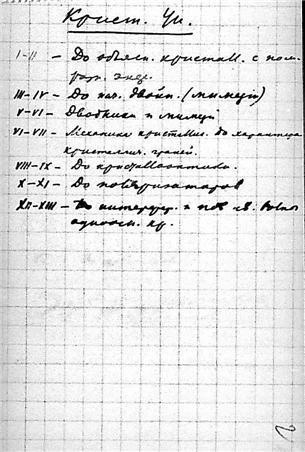 Крист. Чи.
I-II – До объясн. кристалл. с пом.
III-IV – До нач. двойн. (мимеций)
V-VI – Двойники и мимеций
VI-VII – Механика кристалл. до характера
кристаллич. граней.
VIII-IX – До кристаллооптики.
X-XI – До поляризаторов
XII-XIII – интерфер. и
одноосн. кр.
2